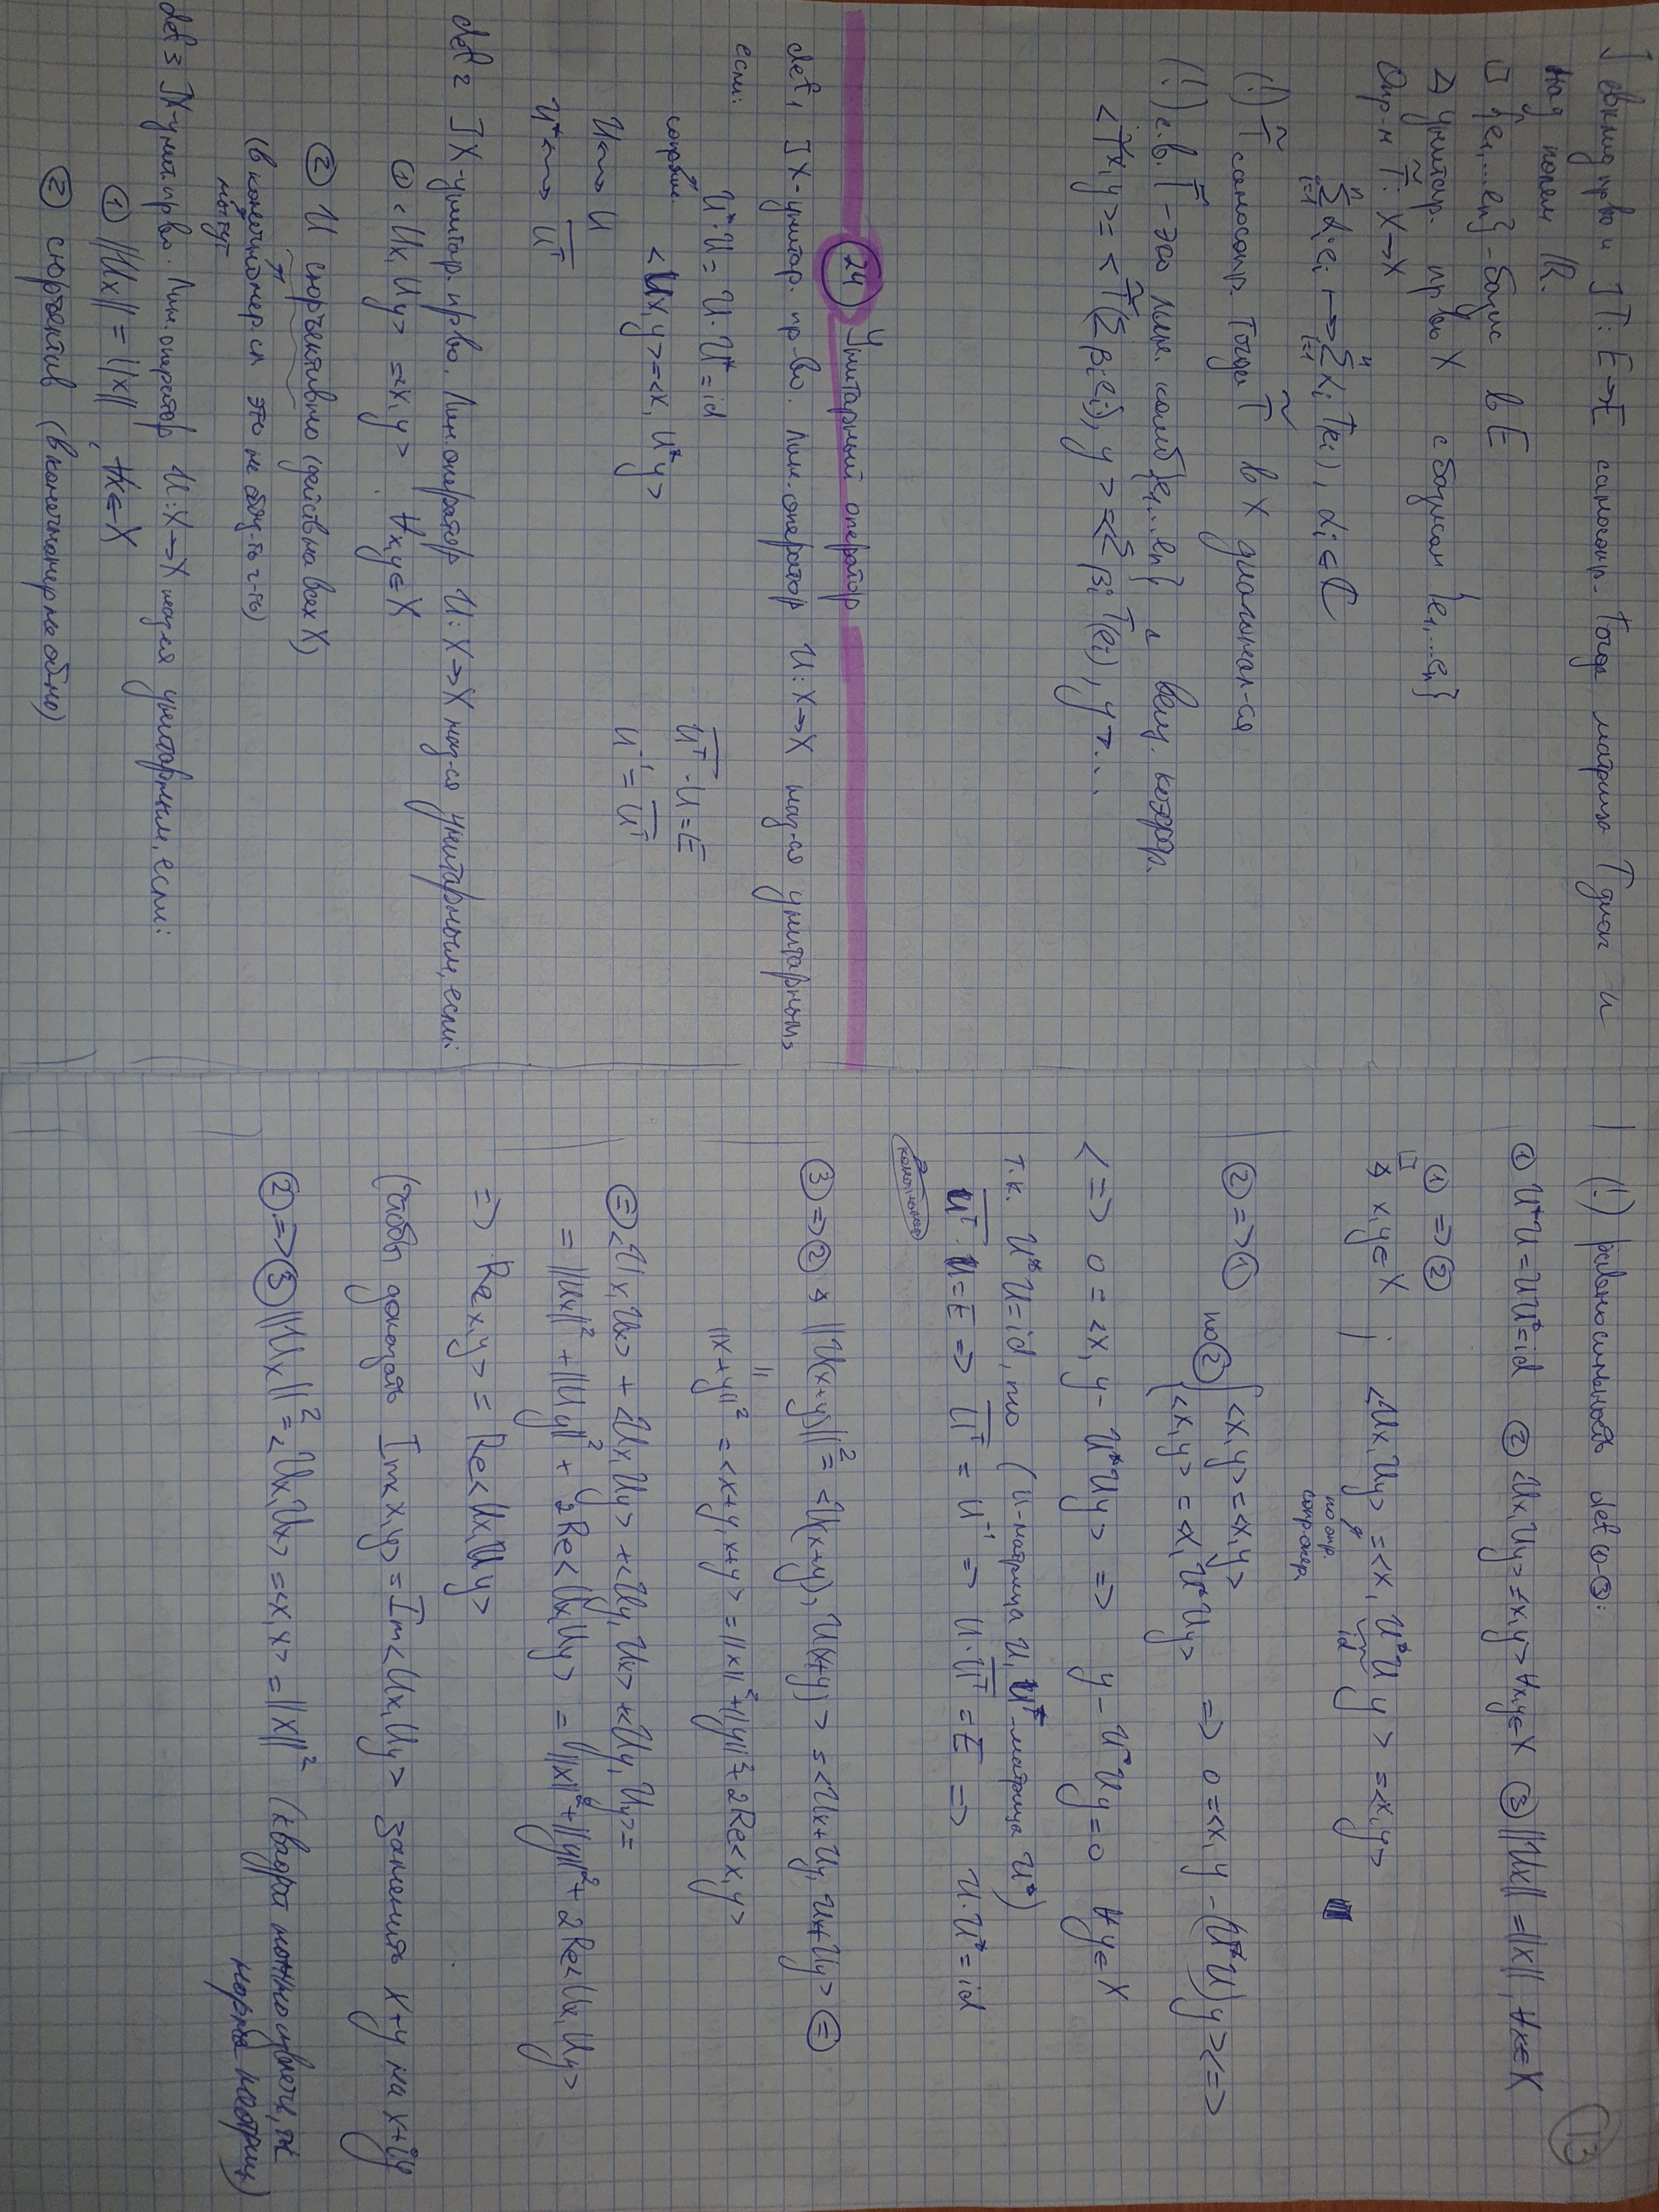 ] евклид. пр-во и ] T: E→E самосопр. Тогда матрица T диаг и
над полем ℝ.
□ {e₁,...eₙ} - базис в E
∆ унитар. пр-во X с базисом {e₁,...eₙ}
Опр-м T̃: X→X
∑ᵢ₌₁ⁿ αᵢeᵢ ↦ ∑ᵢ₌₁ⁿ αᵢ Teᵢ), αᵢ∈ℂ
(!) T̃ самосопр. Тогда T̃ в X диагонал-ся
(!) с.в. T̃ - это лин. комб {e₁,...eₙ} с вещ. коэфф.
<T̃x, y> = <T̃(∑βᵢeᵢ), y> = <∑βᵢ T(eᵢ), y> ...
24 Унитарный оператор
def 1 ] X-унитар. пр-во. Лин. оператор U: X→X наз-ся унитарным,
если:
U*·U = U·U* = id
сопряж <Ux, y> = <x, U*y>
U ⇝ U
U* ⇝ U̅ᵀ
U̅ᵀ·U = E
U⁻¹ = U̅ᵀ
def 2 ] X-унитар. пр-во. Лин. оператор U: X→X наз-ся унитарным, если:
① <Ux, Uy> = <x, y> ∀x,y∈X
② U сюръективно (действ. на всех X)
(в конечномер. сл это не обяз-но ч-ть)
def 3 ] X-унит пр-во. Лин. оператор U: X→X наз-ся унитарным, если:
① ||Ux|| = ||x||, ∀x∈X
② сюръектив (в конечномер не обяз-но)
13
(!) равносильность def ①-③:
① U*U = UU* = id ② <Ux, Uy> = <x, y> ∀x,y∈X ③ ||Ux|| = ||x||, ∀x∈X
① => ②
□ ∆ x,y∈X ; <Ux, Uy> = <x, U*U y> = <x, y>
по опр. сопр. опер. id
② => ① по ② { <x, y> = <x, y>
<x, y> = <x, U*Uy> => 0 = <x, y - (U*U)y> <=>
<=> 0 = <x, y - U*Uy> => y - U*Uy = 0 ∀y∈X
т.к. U*U = id, то (U-матрица U, U̅ᵀ-матрица U*)
U̅ᵀ·U = E => U̅ᵀ = U⁻¹ => U·U̅ᵀ = E => U·U* = id
③ => ② ∆ ||U(x+y)||² = <U(x+y), U(x+y)> = <Ux+Uy, Ux+Uy> ⊜
||
||x+y||² = <x+y, x+y> = ||x||² + ||y||² + 2Re<x, y>
⊜ <Ux, Ux> + <Ux, Uy> + <Uy, Ux> + <Uy, Uy> =
= ||Ux||² + ||Uy||² + 2Re<Ux, Uy> = ||x||² + ||y||² + 2Re<Ux, Uy>
=> Re<x, y> = Re<Ux, Uy>
(чтобы доказать Im<x, y> = Im<Ux, Uy> заменить x+y на x+iy
② => ③ ||Ux||² = <Ux, Ux> = <x, x> = ||x||² (квадрат можно извлечь, тк
норма неотриц)